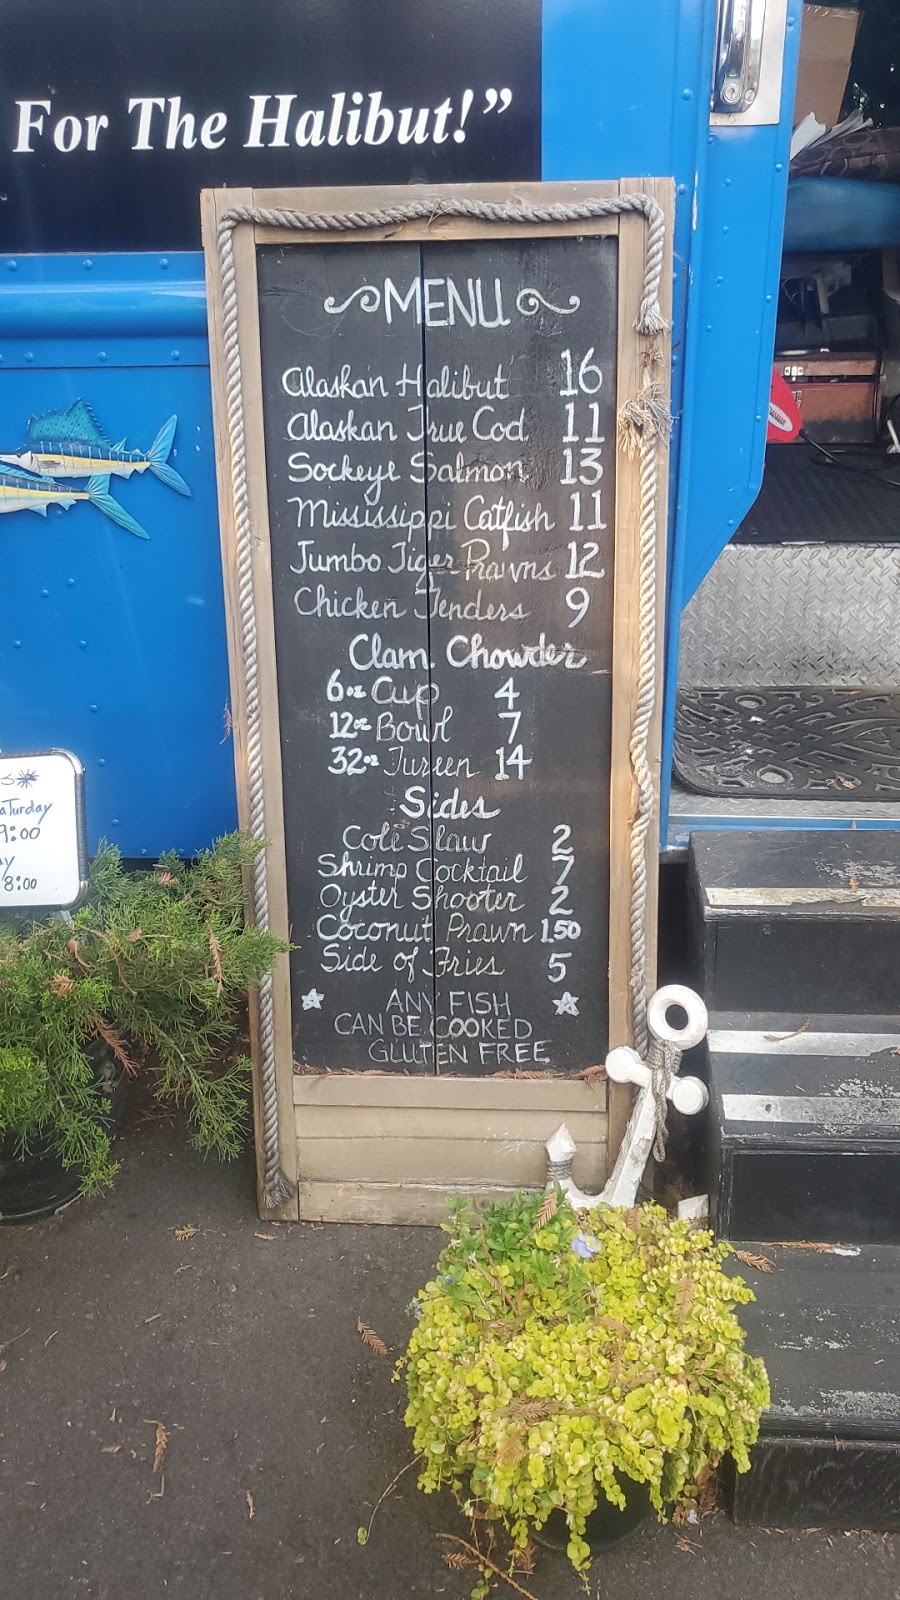 For The Halibut!”
MENU
Alaskan Halibut 16
Alaskan True Cod 11
Sockeye Salmon 13
Mississippi Catfish 11
Jumbo Tiger Prawns 12
Chicken Tenders 9
Clam Chowder
6oz Cup 4
12oz Bowl 7
32oz Tureen 14
Sides
Cole Slaw 2
Shrimp Cocktail 7
Oyster Shooter 2
Coconut Prawn 1.50
Side of Fries 5
ANY FISH
CAN BE COOKED
GLUTEN FREE
aturday
9:00
y
8:00